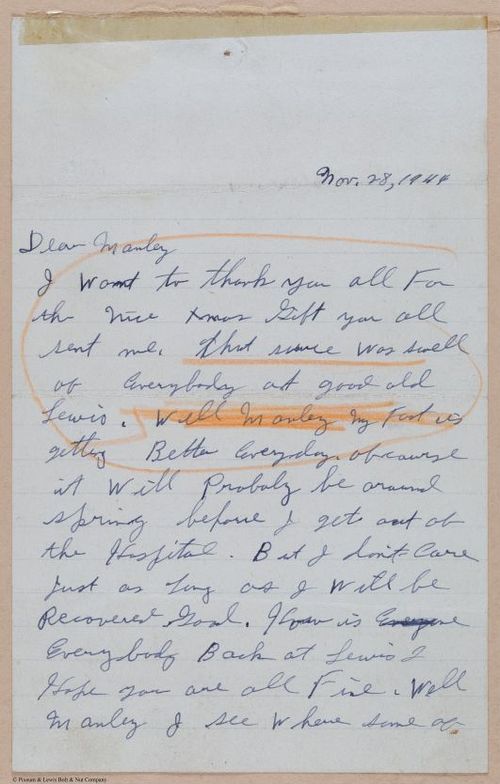 Nov. 28, 1944
Dear Manley
I Want to thank you all For
the Nice Xmas Gift you all
sent me. that suure was swell
of Everybody at good old
Lewis. Well Manley My Foot is
getting Better Everyday. ofcourse
it Will Probaly be around
spring before I get out of
the Hospital. But I don't Care
Just as long as I Will be
Recovered Good. How is
Everybody Back at Lewis I
Hope you are all Fine. Well
Manley I see Where some of
© Pioneer & Lewis Bolt & Nut Company